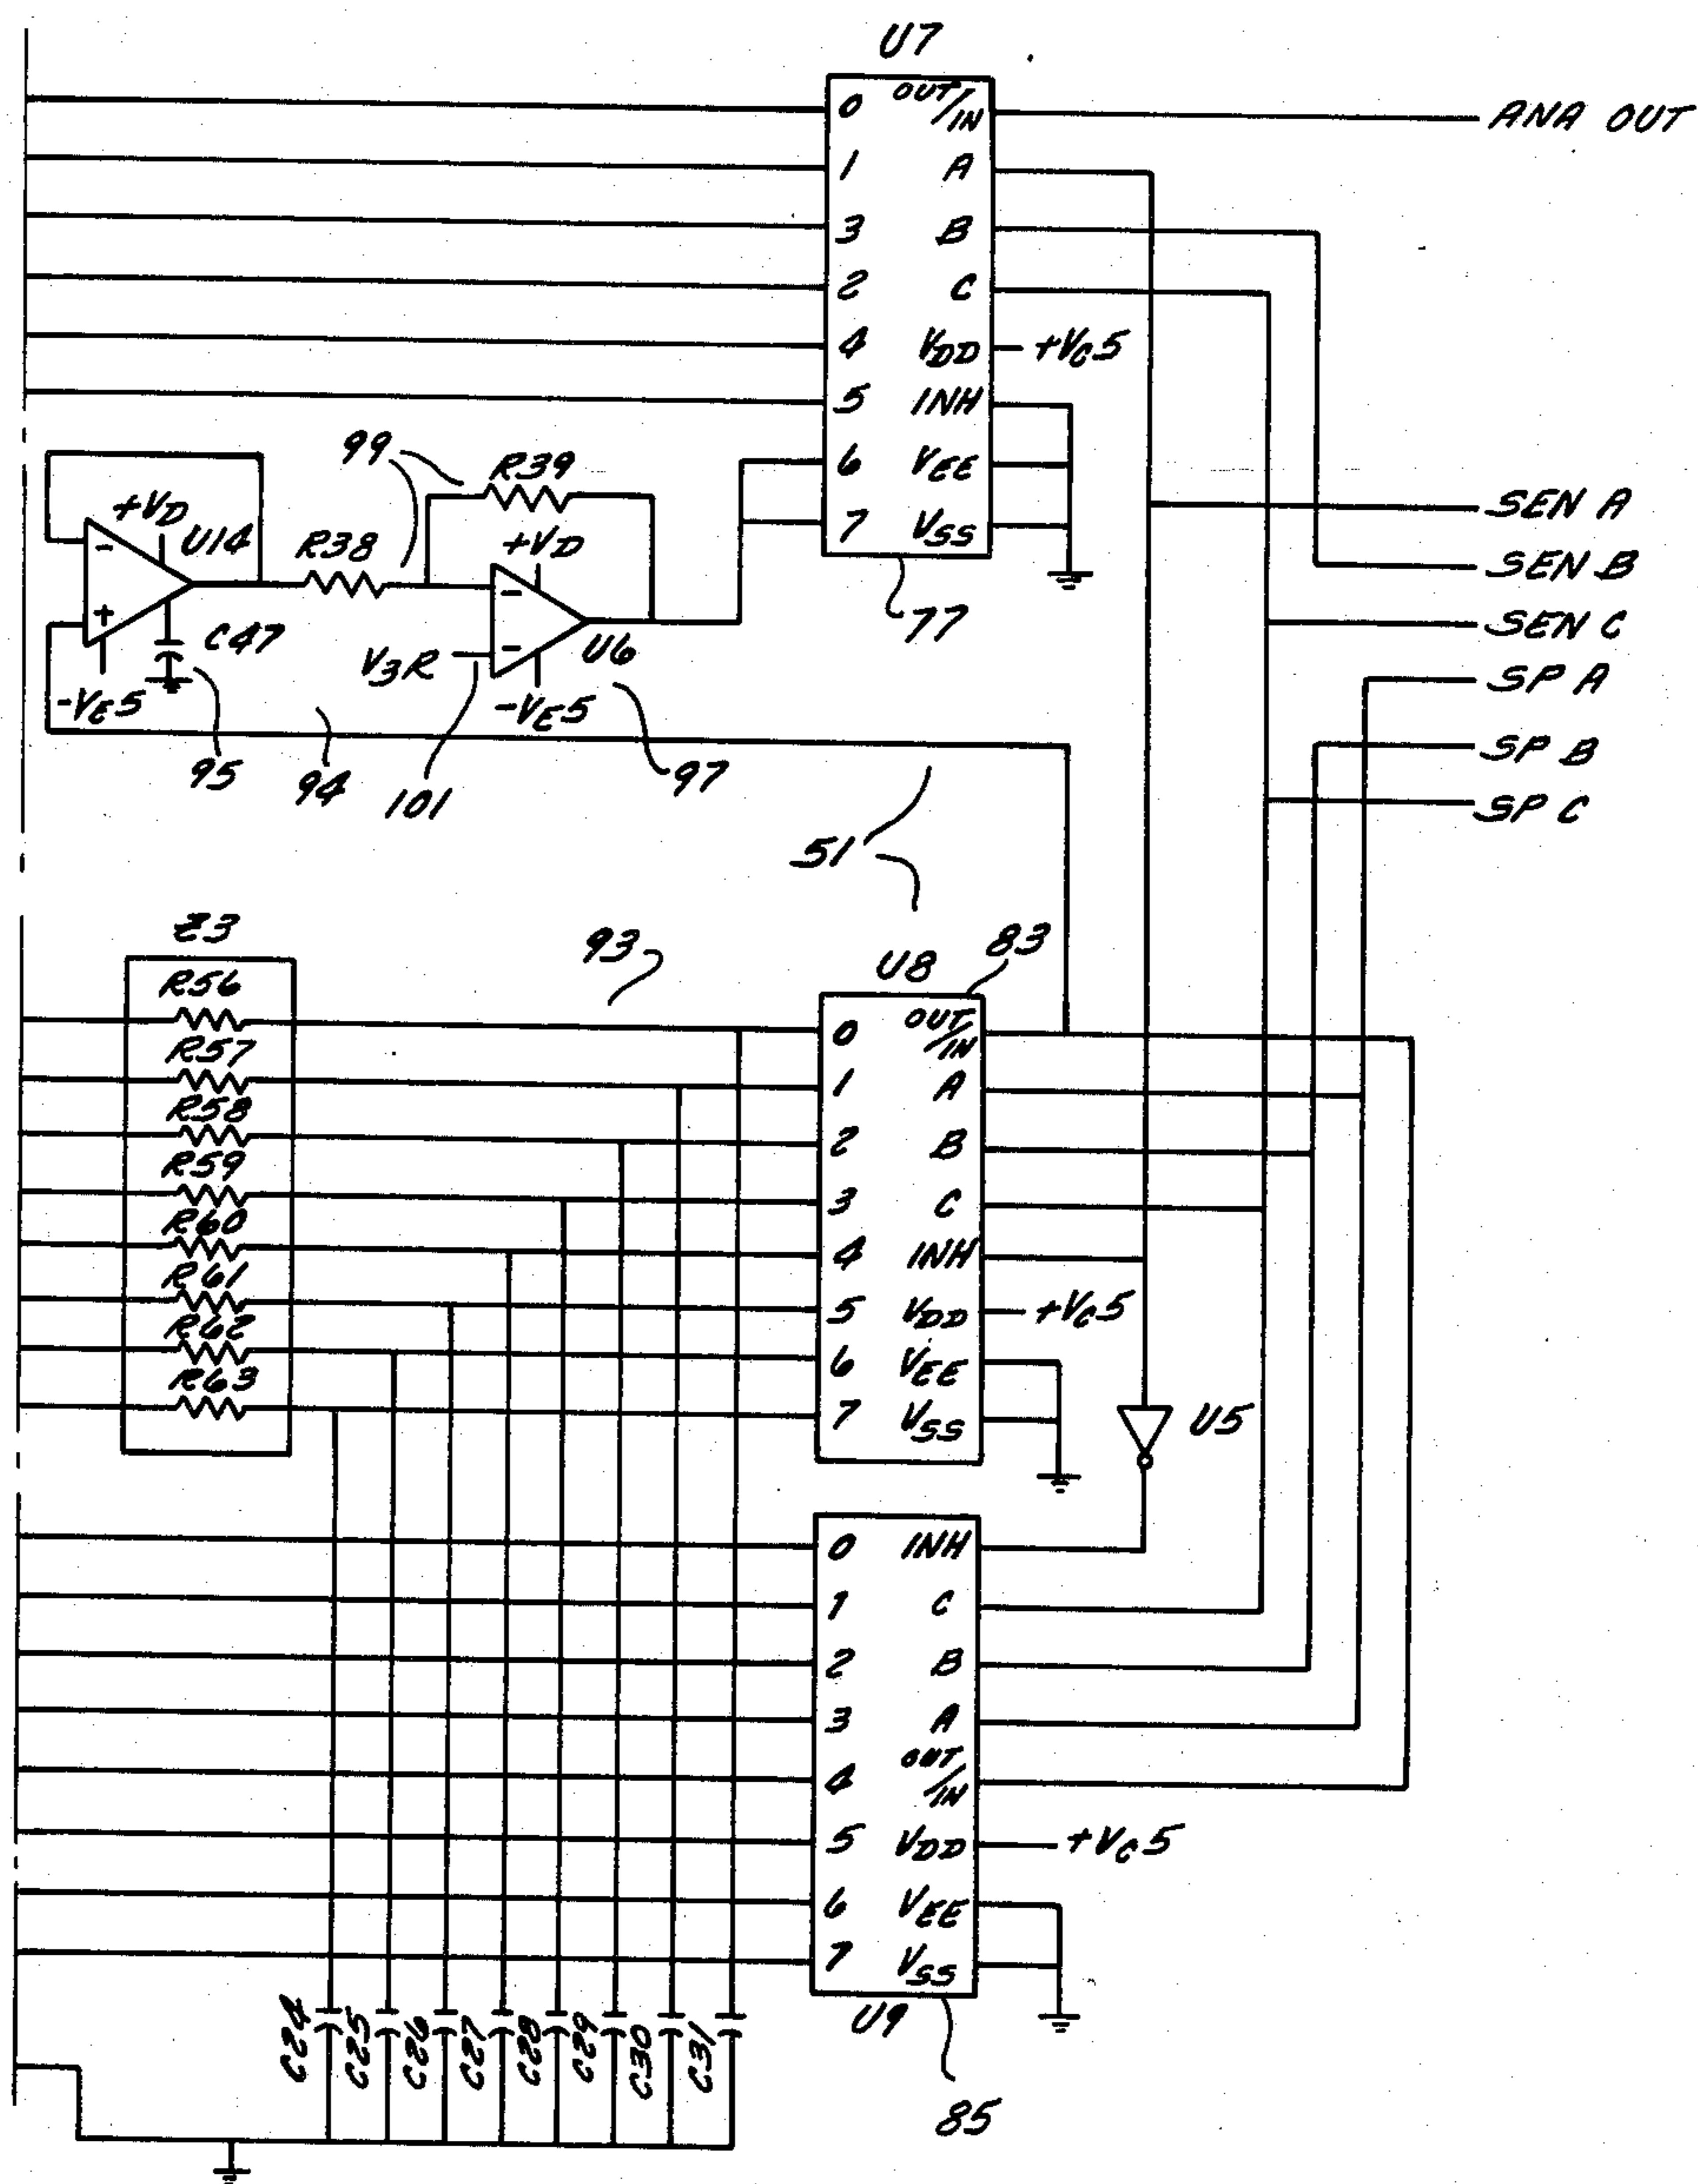 U7
0 OUT/IN
ANA OUT
1 A
3 B
2 C
4 VDD +VC5
5 INH
6 VEE
7 VSS
77
SEN A
SEN B
SEN C
SP A
SP B
SP C
99
R39
+VD
U14
R38
+VD
-
+
C47
-
-
U6
V3R
-VE5
-VE5
95
94
101
97
51
Z3
93
U8
83
R56
R57
R58
R59
R60
R61
R62
R63
0 OUT/IN
1 A
2 B
3 C
4 INH
5 VDD +VC5
6 VEE
7 VSS
U5
0 INH
1 C
2 B
3 A
4 OUT/IN
5 VDD +VC5
6 VEE
7 VSS
U9
85
C24
C25
C26
C27
C28
C29
C30
C31